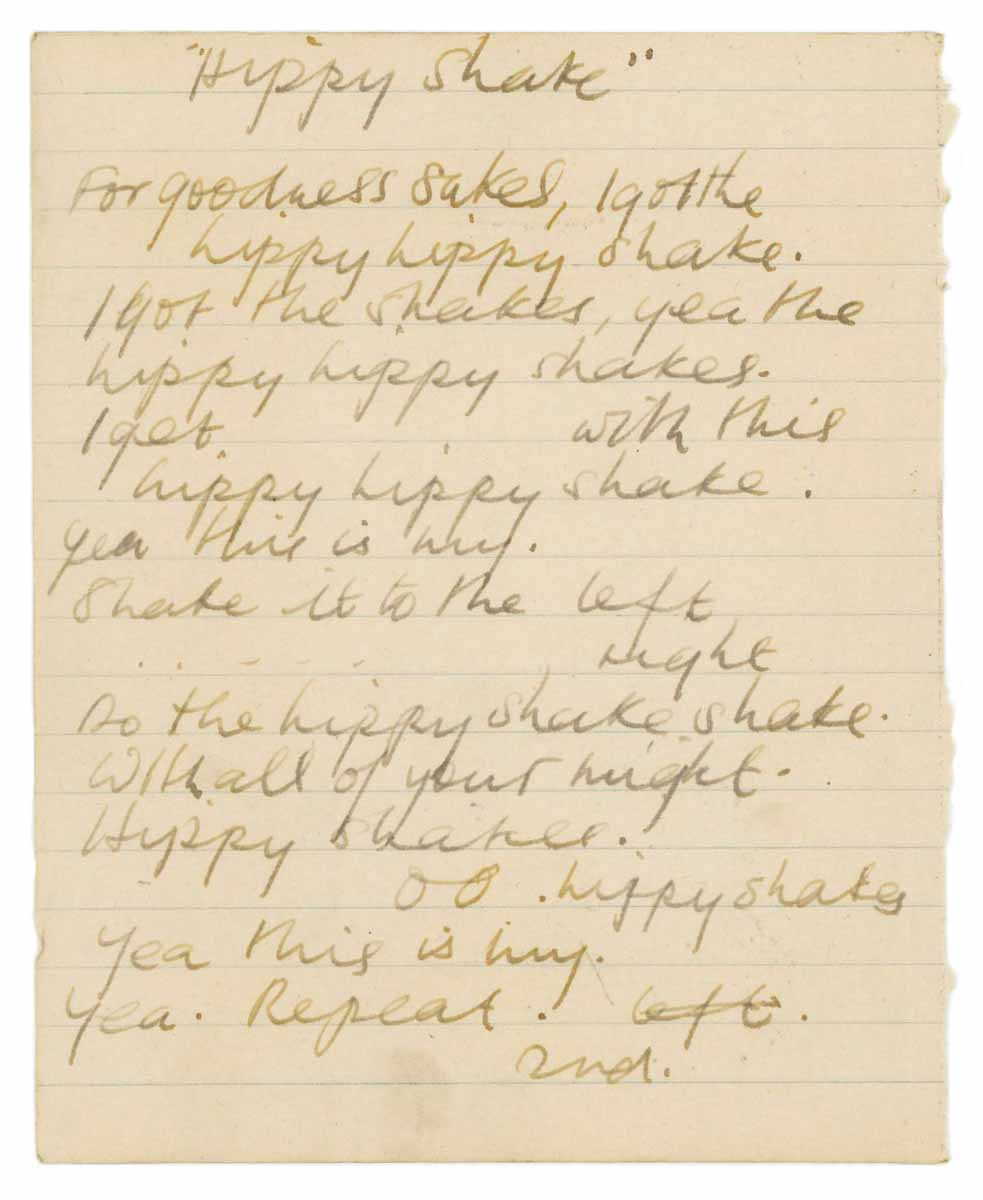 "Hippy Shake"
For goodness sakes, I got the
hippy hippy shake.
I got the shakes, yea the
hippy hippy shakes.
I get with this
hippy hippy shake.
yea this is my.
Shake it to the left
.. - - - . right
Do the hippy shake shake.
With all of your might.
Hippy shakes.
OO. hippy shakes
Yea this is my.
Yea. Repeat. left.
2nd.